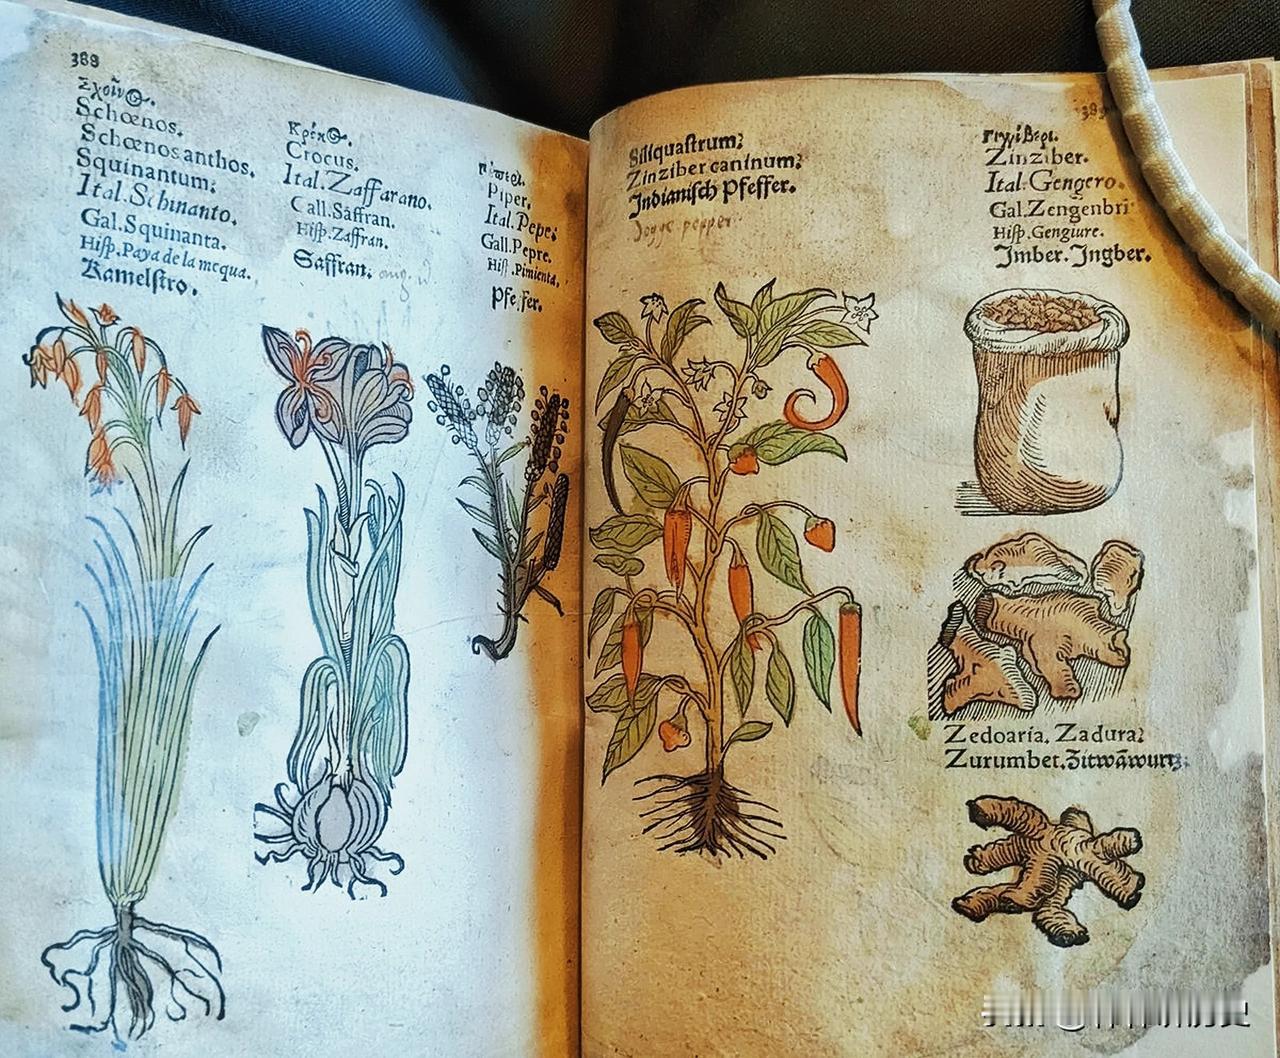 388
Σχοῖνος.
Schœnos.
Schœnos anthos.
Squinantum:
Ital. Schinanto.
Gal. Squinanta.
Hisp. Paya de la mequa.
Kamelstro.
Κρόκος.
Crocus.
Ital. Zaffarano.
Gall. Saffran.
Hisp. Zaffran.
Saffran.
Piper.
Ital. Pepe:
Gall. Pepre.
Hisp. Pimienta.
Pfeffer.
Siliquastrum:
Zinziber caninum:
Indianisch Pfeffer.
pepper
389
Ζιγγίβερι.
Zinziber.
Ital. Gengero.
Gal. Zengenbri
Hisp. Gengiure.
Imber. Ingber.
Zedoaria. Zadura:
Zurumbet. Zitwāwurtz.